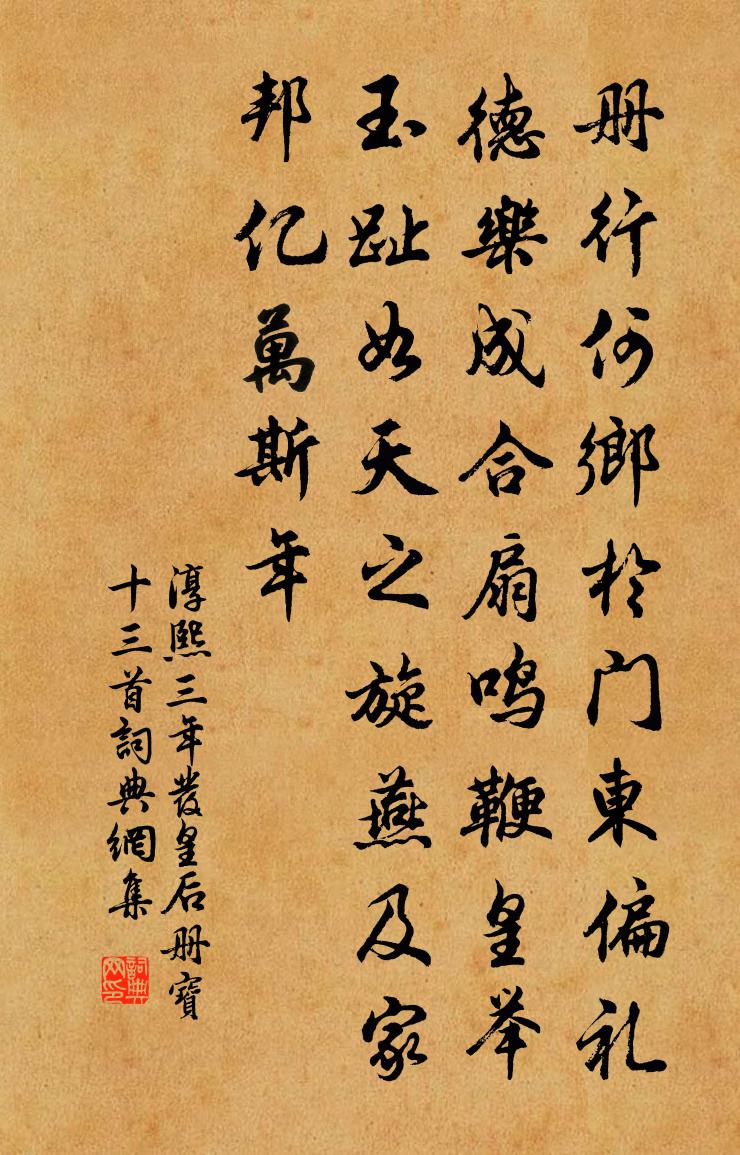 册行何鄉於门東偏礼
德樂成合扇鸣鞭皇举
玉趾如天之旋燕及家
邦亿萬斯年
淳熙三年發皇后册寶
十三首詞典網集
詞典
网印